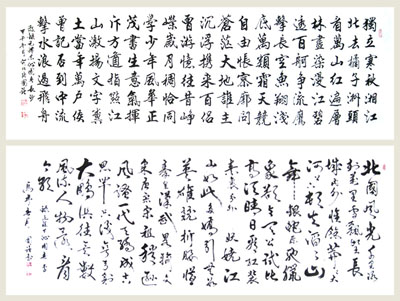 獨立寒秋湘江
北去橘子洲頭
看萬山紅遍層
林盡染漫江碧
透百舸爭流鷹
擊長空魚翔淺
底萬類霜天競
自由悵寥廓問
蒼茫大地誰主
沉浮攜來百侶
曾游憶往昔崢
嶸歲月稠恰同
學少年風華正
茂書生意氣揮
斥方遒指點江
山激揚文字糞
土當年萬戶侯
曾記否到中流
擊水浪遏飛舟
北國風光千里冰
封萬里雪飄望長
城內外惟餘莽莽大
河上下頓失滔滔山
舞銀蛇原馳蠟
象欲與天公試比
高須晴日看紅裝
素裹分外妖嬈江
山如此多嬌引無數
英雄競折腰惜
秦皇漢武略輸文
采唐宗宋祖稍遜
風騷一代天驕成吉
思汗只識彎弓射
大雕俱往矣數
風流人物還看
今朝